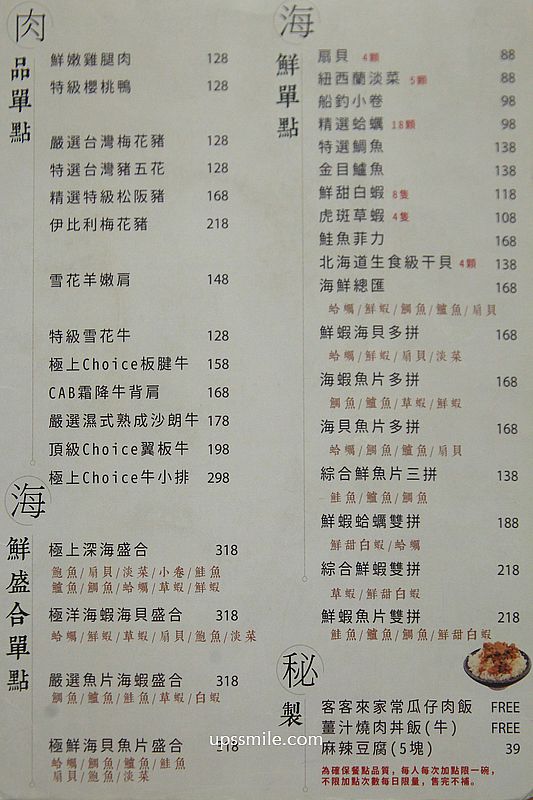 肉品單點
鮮嫩雞腿肉 128
特級櫻桃鴨 128
嚴選台灣梅花豬 128
特選台灣豬五花 128
精選特級松阪豬 168
伊比利梅花豬 218
雪花羊嫩肩 148
特級雪花牛 128
極上Choice板腱牛 158
CAB霜降牛背肩 168
嚴選濕式熟成沙朗牛 178
頂級Choice翼板牛 198
極上Choice牛小排 298
海鮮盛合單點
極上深海盛合 318
鮑魚/扇貝/淡菜/小卷/鮭魚
鱸魚/鯛魚/蛤蠣/草蝦/鮮蝦
極洋海蝦海貝盛合 318
蛤蠣/鮮蝦/草蝦/扇貝/鮑魚/淡菜
嚴選魚片海蝦盛合 318
鯛魚/鱸魚/鮭魚/草蝦/白蝦
極鮮海貝魚片盛合 318
蛤蠣/鯛魚/鱸魚/鮭魚
扇貝/鮑魚/淡菜
海鮮單點
扇貝 4顆 88
紐西蘭淡菜 5顆 88
船釣小卷 98
精選蛤蠣 18顆 98
特選鯛魚 138
金目鱸魚 138
鮮甜白蝦 8隻 118
虎斑草蝦 4隻 108
鮭魚菲力 168
北海道生食級干貝 4顆 138
海鮮總匯 168
蛤蠣/鮮蝦/鯛魚/鱸魚/扇貝
鮮蝦海貝多拼 168
蛤蠣/鮮蝦/扇貝/淡菜
海蝦魚片多拼 168
鯛魚/鱸魚/草蝦/鮮蝦
海貝魚片多拼 168
蛤蠣/鯛魚/鱸魚/扇貝
綜合鮮魚片三拼 138
鮭魚/鱸魚/鯛魚
鮮蝦蛤蠣雙拼 188
鮮甜白蝦/蛤蠣
綜合鮮蝦雙拼 218
草蝦/鮮甜白蝦
鮮蝦魚片雙拼 218
鮭魚/鱸魚/鯛魚/鮮甜白蝦
秘製
客客來家常瓜仔肉飯 FREE
薑汁燒肉丼飯(牛) FREE
麻辣豆腐(5塊) 39
為確保餐點品質，每人每次加點限一碗，
不限加點次數每日限量，售完不補。
upssmile.com